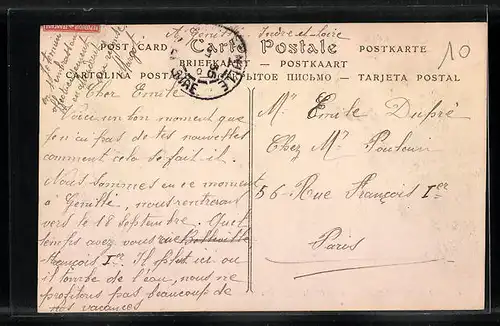 A Génillé Indre-et-Loire
POST CARD Carte Postale POSTKARTE
BRIEFKAART — POSTKAART
CARTOLINA POSTALE ОТКРЫТОЕ ПИСЬМО — TARJETA POSTAL
10
INDRE
Cher Emile
Voici un bon moment que
je n'ai pas de tes nouvelles
comment cela se fait-il.
Nous sommes en ce moment
à Génillé, nous rentrerons
vers le 18 septembre. Quel
temps avez vous rue
François Ier. Il pleut ici ou
il tombe de l'eau, nous ne
profitons pas beaucoup de
nos vacances
en t'embrassant
Mr. Emile Dupré
Chez Mr. Poulain
56 - Rue François Ier
Paris